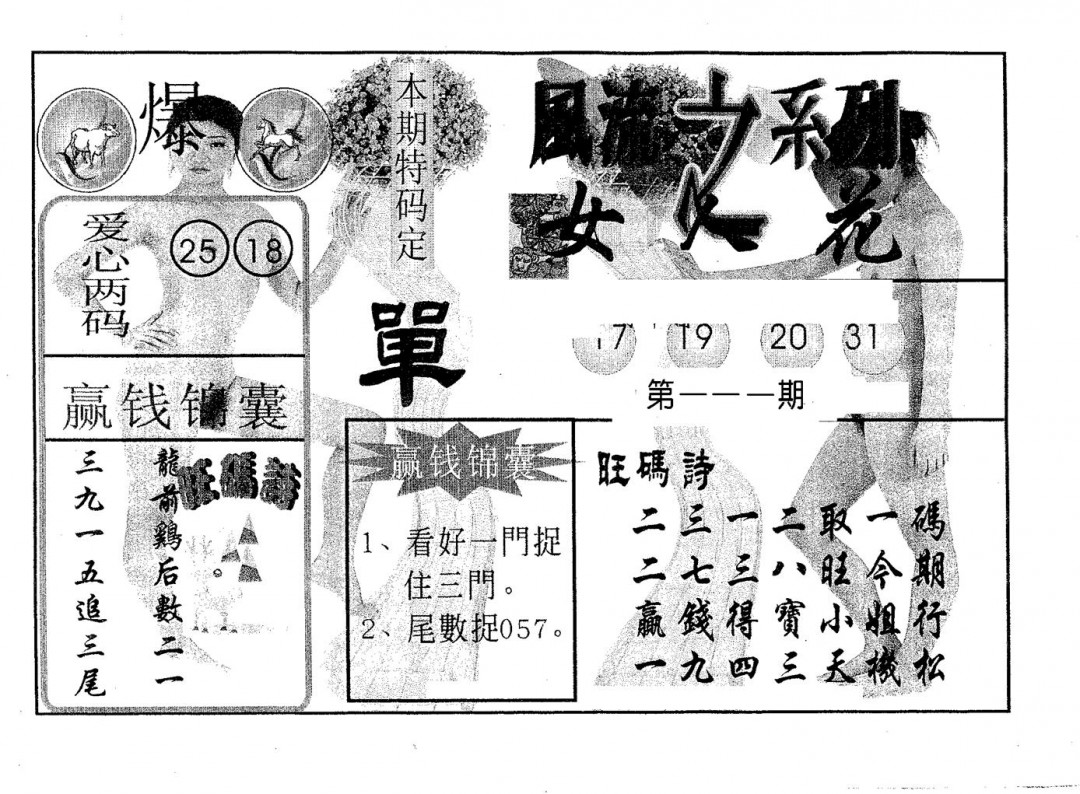 爆
本期特码定
單
風流 系列
女 花
爱心两码
25 18
17 19 20 31
第一一一期
赢钱锦囊
旺碼詩
龍前鷄后數二一
三九一五追三尾
赢钱锦囊
1、看好一門捉
住三門。
2、尾數捉057。
旺碼詩
二三一二取一碼
二七三八旺今期
贏錢得寶小姐行
一九四三天機松